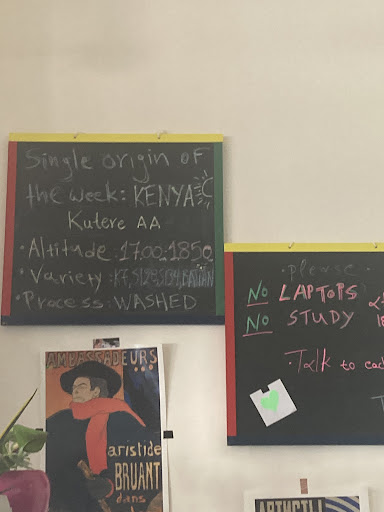 Single origin of
the week: KENYA
Kutere AA
• Altitude: 1700-1850
• Variety:
• Process: WASHED
• please •
No LAPTOPS
No STUDY
• Talk to
AMBASSADEURS...
aristide
BRUANT
dans